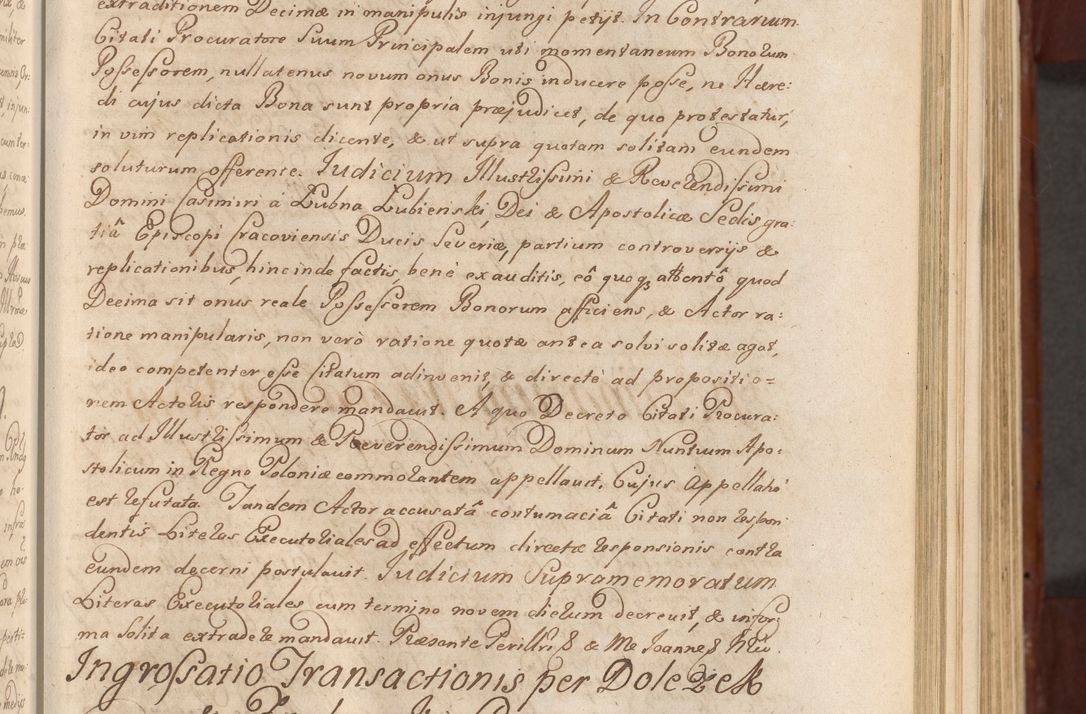 extraditionem Decimæ in manipulis injungi petyt. In Contrarium
Citati Procuratore Suum Principalem uti momentaneum Bonorum
Possessorem, nullatenus novum onus Bonis inducere posse, ne Hære:
di cujus dicta Bona sunt propria præjudicet, de quo protestatur,
in vim replicationis dicente, & ut supra quotam solitam eundem
soluturum offerente. Iudicium Illustrissimi & Reverendissimi
Domini Casimiri à Łubna Łubieński, Dei & Apostolicæ Sedis gra:
tiâ Episcopi Cracoviensis Ducis Severiæ, partium controversijs &
replicationibus, hinc inde factis, benè exauditis, eô quoq; attentô, quod
Decima sit onus reale Possessorem Bonorum afficiens, & Actor ra:
tione manipularis, non verò ratione quotæ antea solvi solitæ agat,
ideo competenter esse Citatum adinvenit, & directè ad propositio=
nem Actoris respondere mandavit. A quo Decreto Citati Procura:
tor ad Illustrissimum & Reverendissimum Dominum Nuntium Apo:
stolicum in Regno Poloniæ commorantem appellavit. Cujus Appellatió
est refutata. Tandem Actor accusatâ contumaciâ Citati non respon:
dentis Literas Executoriales ad effectum directæ responsionis contra
eundem decerni postulavit. Iudicium Supramemoratum
Literas Executoriales cum termino novem dierum decrevit, & in for:
ma solita extradere mandavit. Præsente Perillri & Me Joanne
Ingrossatio Transactionis per Dolezek